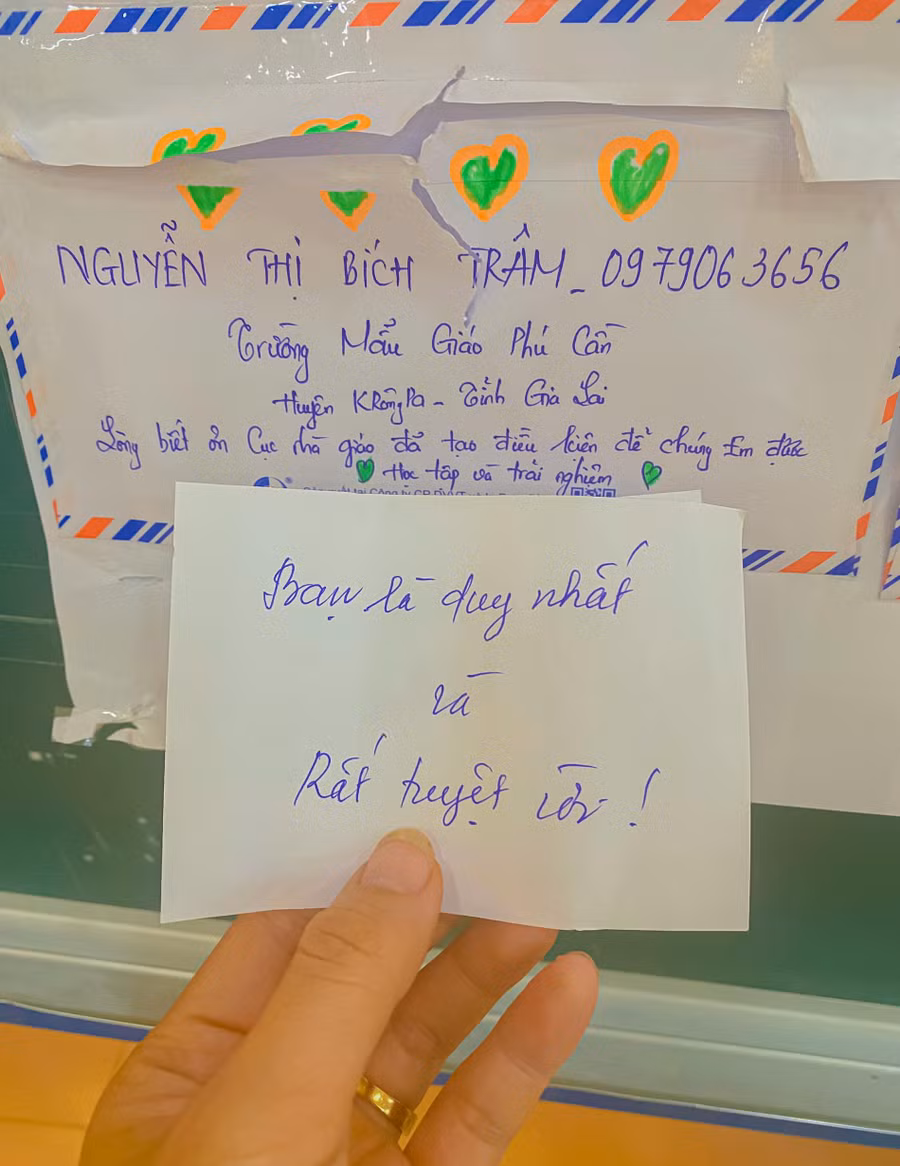 NGUYỄN THỊ BÍCH TRÂM_0979063656
Trường Mẫu Giáo Phú Cần
Huyện KRôngPa - Tỉnh Gia Lai
Lòng biết ơn Cục nhà giáo đã tạo điều kiện để chúng Em được
Học tập và trải nghiệm
Bạn là duy nhất
và
Rất tuyệt vời !